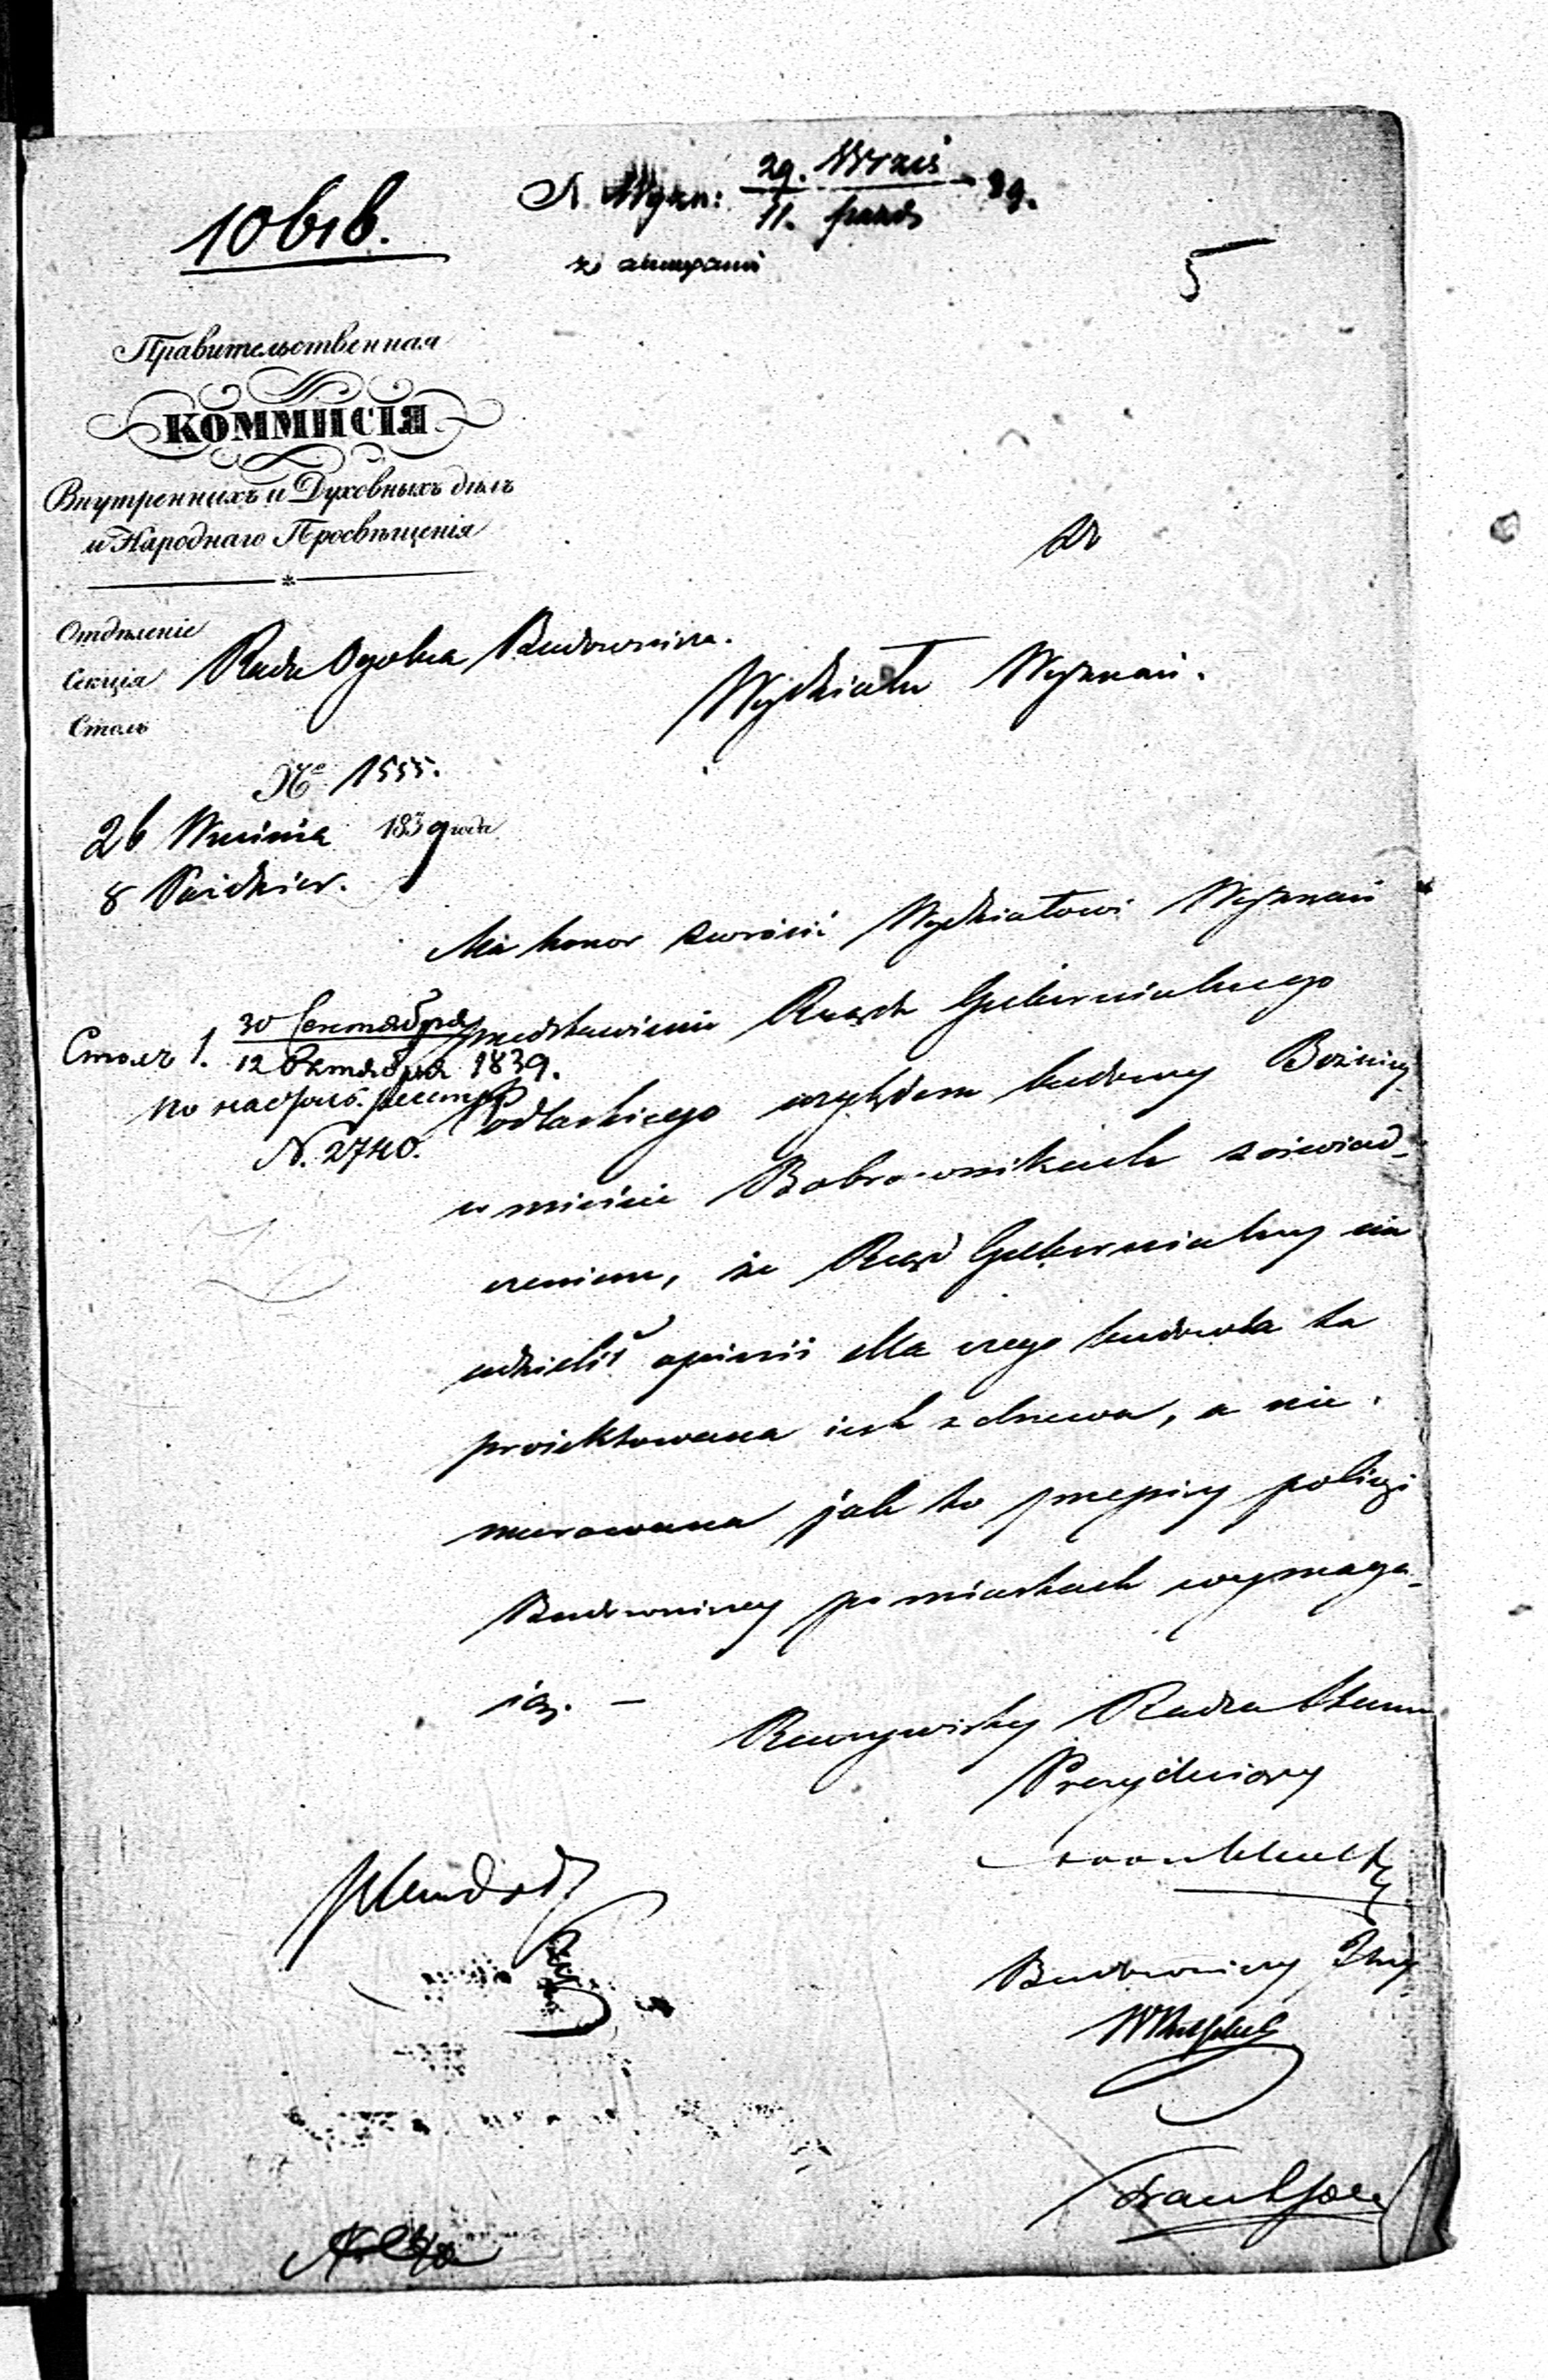 10618.
N. Wyzn: 29. Wrześ 39.
11. paźd
5
Правительственная
КОММИСІЯ
Внутреннихъ и Духовныхъ дѣлъ
и Народнаго Просвѣщенія
Do
Отдѣленіе
Секція Rada Ogolna Budownicza.
Столъ
Wydziału Wyznań.
№ 1555.
26 Września 1839 года
8 Paździer.
Ma honor zwrócić Wydziałowi Wyznań
przedstawienie Rządu Gubernialnego
Podlaskiego względem budowy Bożnicy
w mieście Bobrownikach z oświad-
czeniem, że Rząd Gubernialny nie
udzielił opinii dla czego budowla ta
projektowana jest z drzewa, a nie
murowana jak to przepisy policyi
Budowniczej po miastach wymaga-
ią. —
Столъ 1. 30 Сентября
12 Октября 1839.
по настол. реестру
N. 2740.
Rzeczywisty Radca Stanu
Prezydujący
Budowniczy